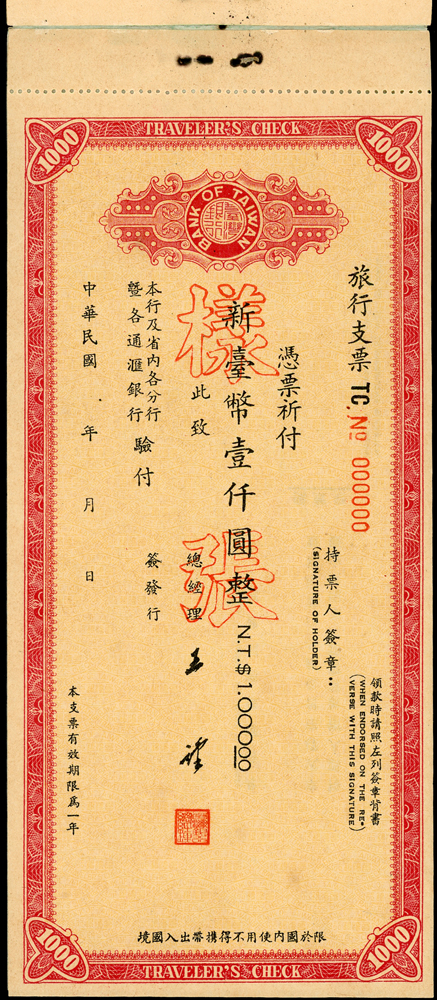 TRAVELER'S CHECK
1000
1000
BANK OF TAIWAN
旅行支票 TC. No 000000
領款時請照左列簽章背書
(WHEN ENDORSED ON THE RE-
VERSE WITH THIS SIGNATURE)
持票人簽章：
(SIGNATURE OF HOLDER)
憑票祈付
新臺幣壹仟圓整 NT.$1,00000
樣張
此致
總經理
本行及省內各分行
暨各通滙銀行
驗付
簽發行
中華民國 年 月 日
本支票有效期限爲一年
限於國內使用不得携帶出入國境
1000
1000
TRAVELER'S CHECK